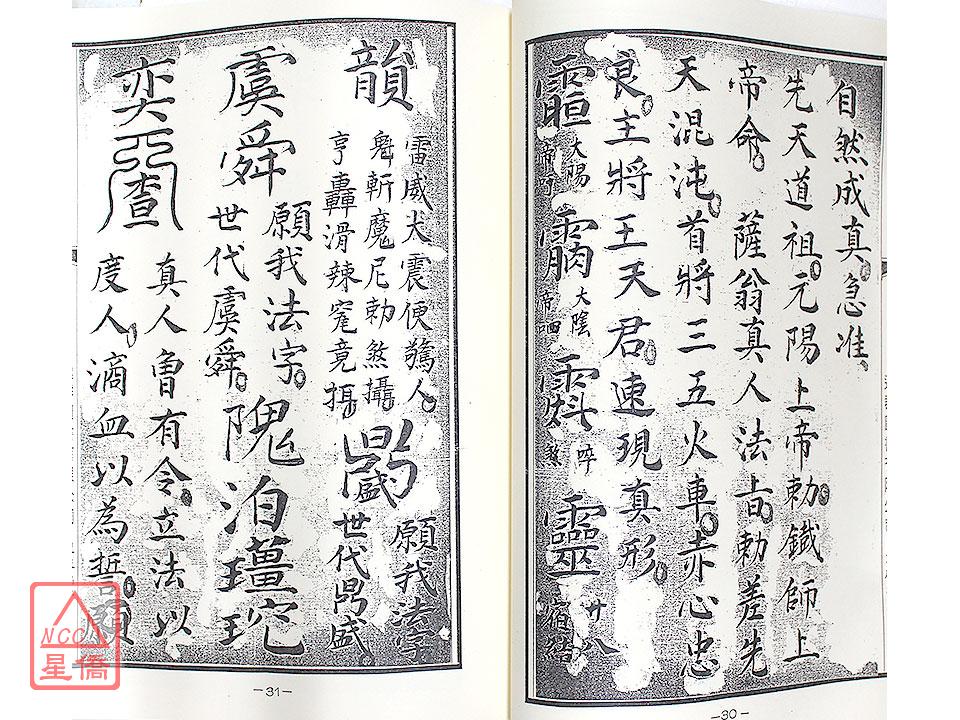 自然成真。急准、
先天道祖。元陽上帝勅。鐵師上
帝命。薩翁真人法旨。勅差先
天混沌。首將三五火車。赤心忠
良。主將王天君。速現真形。
太陽
大陰
啐
煞
靈
廿八
-30-
韻
雷威大震便驚人。
斬魔尼勅煞攝。
亨轟滑辣
攝。
願我法字
世代
盛
虞舜
願我法字。
世代虞舜。
隗泊
真人曾有令。立法以
度人。滴血以為誓。願
-31-
NCC
星僑